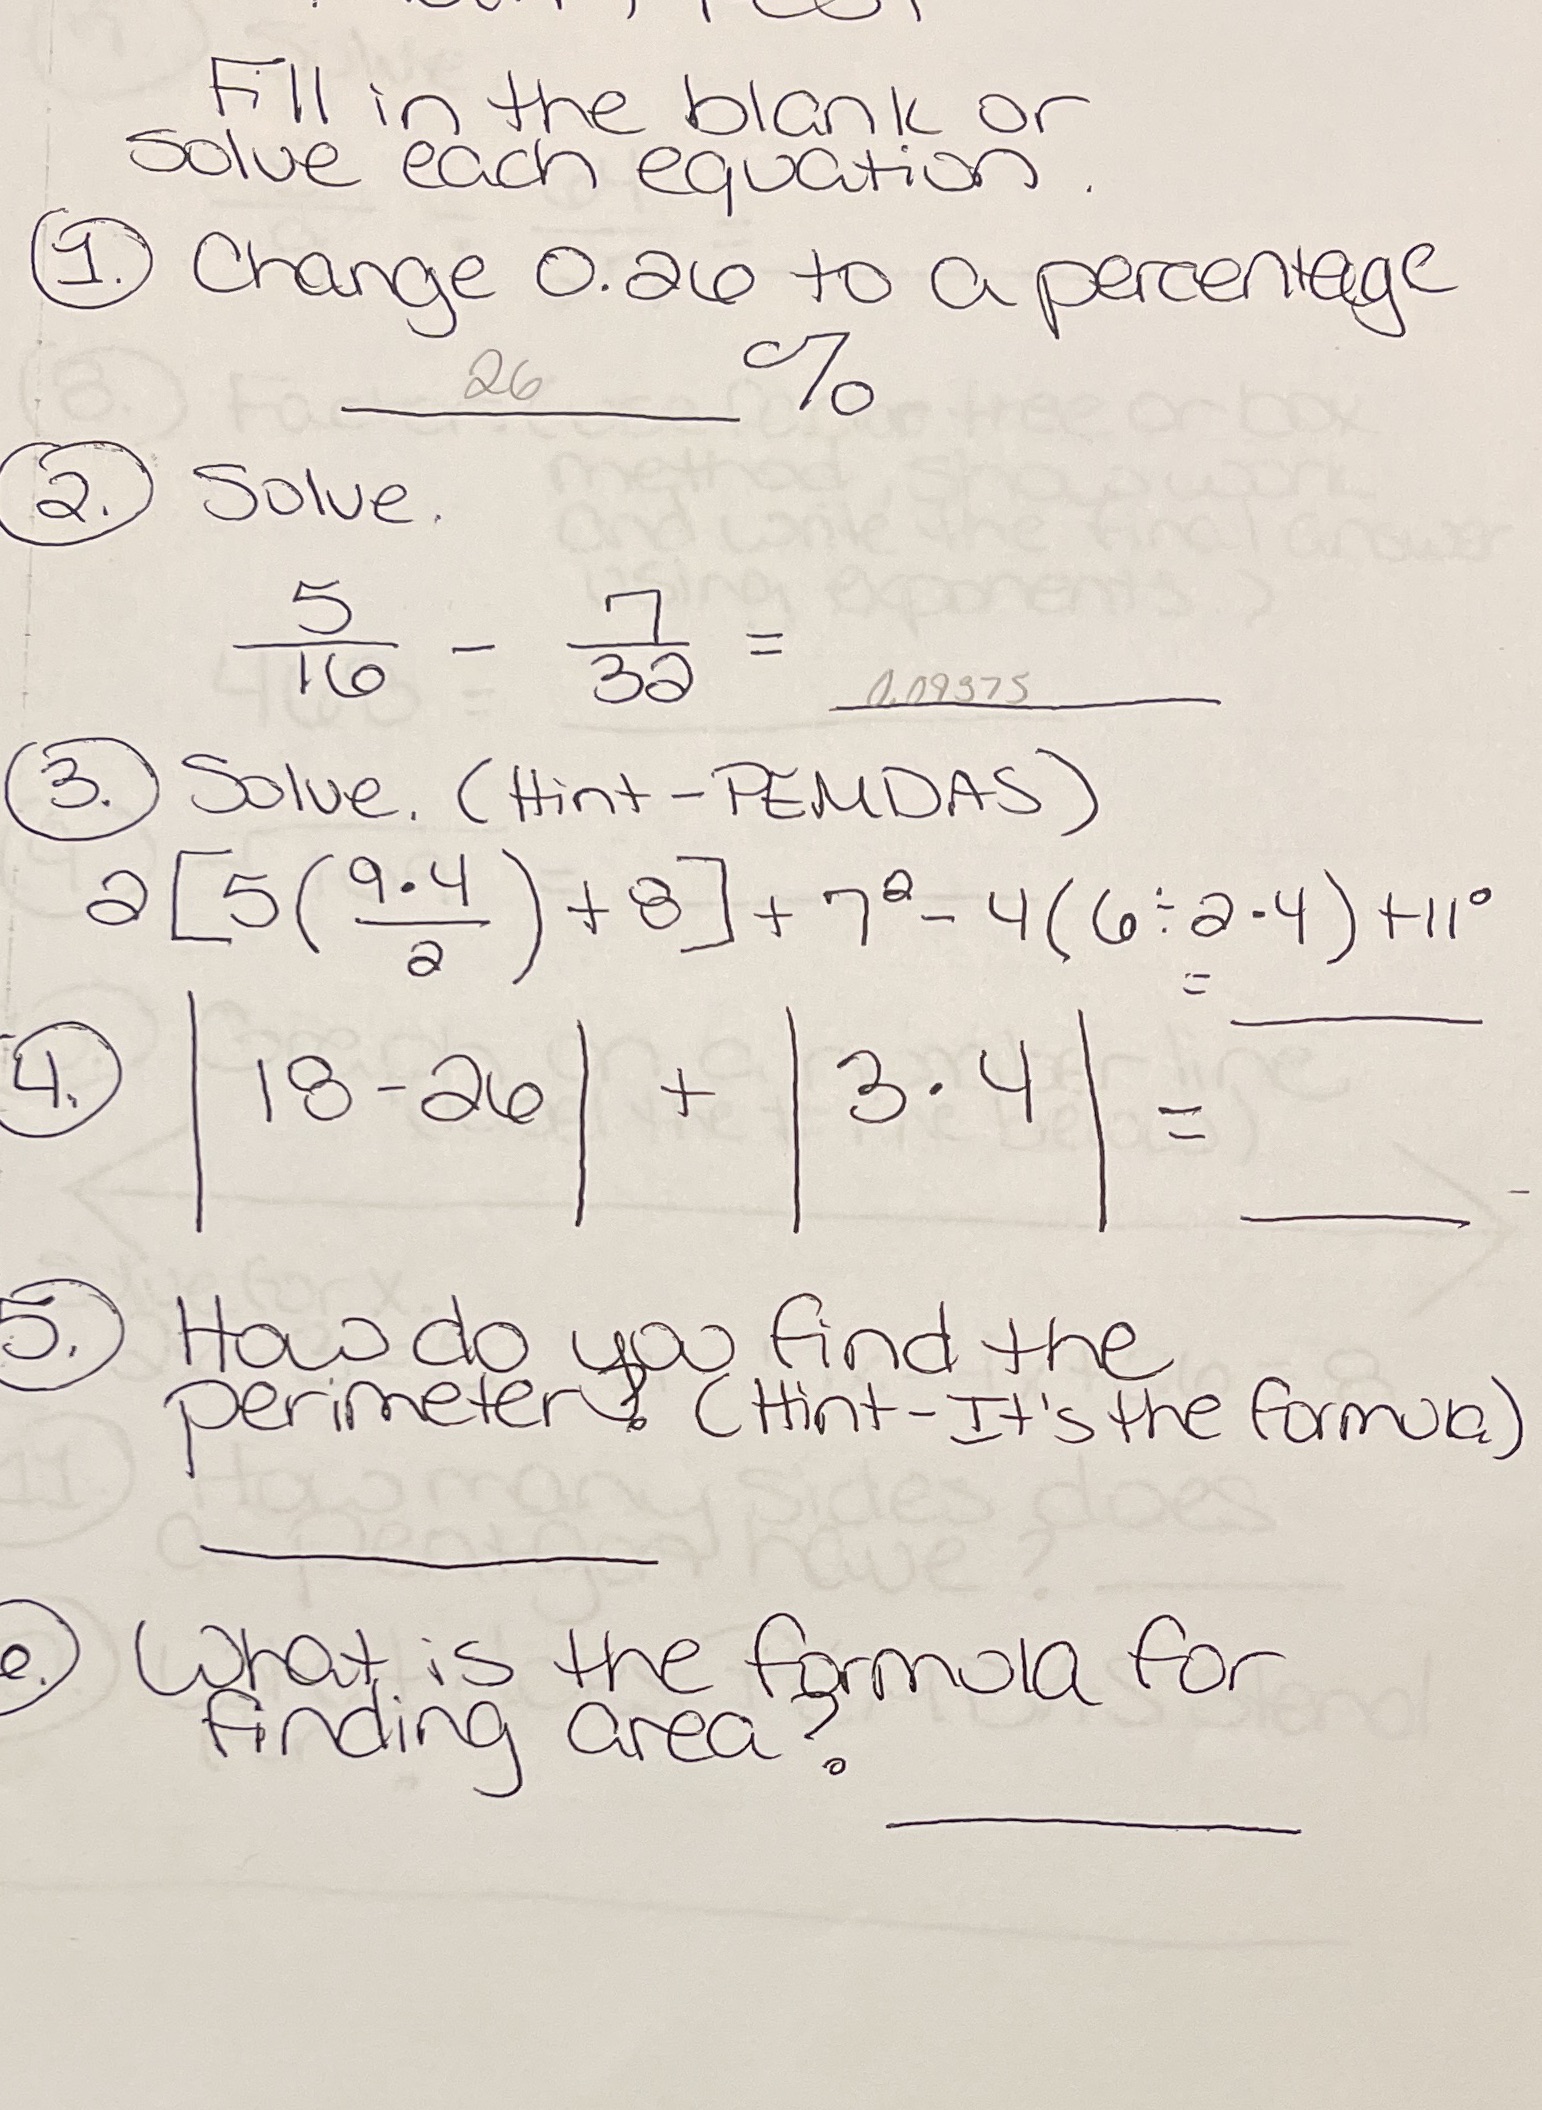 Fill in the blank or
solve each equation.
1. Change 0.26 to a percentage
26 %
2. Solve.
5/16 - 7/32 = 0.09375
3. Solve. (Hint-PEMDAS)
2[5(9·4/2)+8]+7²-4(6÷2·4)+11⁰
=
4. |18-26| + |3·4| =
5. How do you find the
perimeter? (Hint-It's the formula)
What is the formula for
finding area?